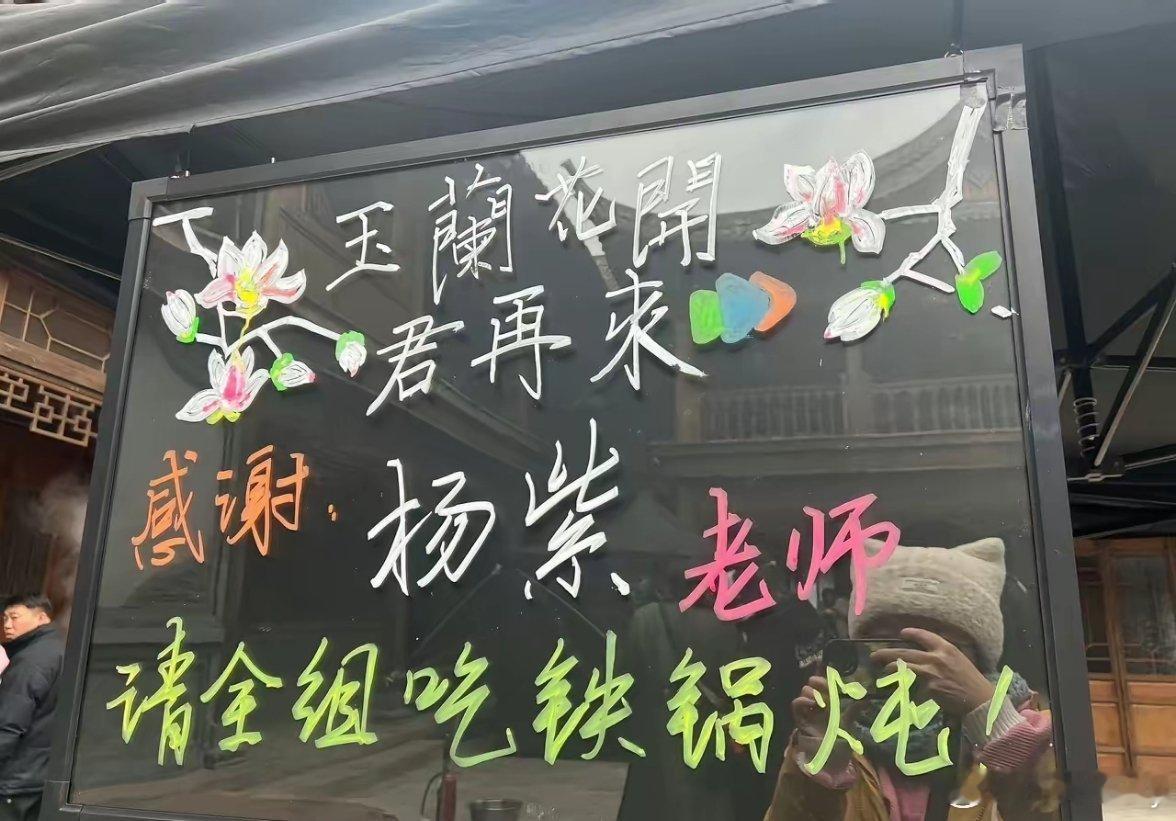 玉蘭花開
君再來
感谢:杨紫老师
请全组吃铁锅炖!